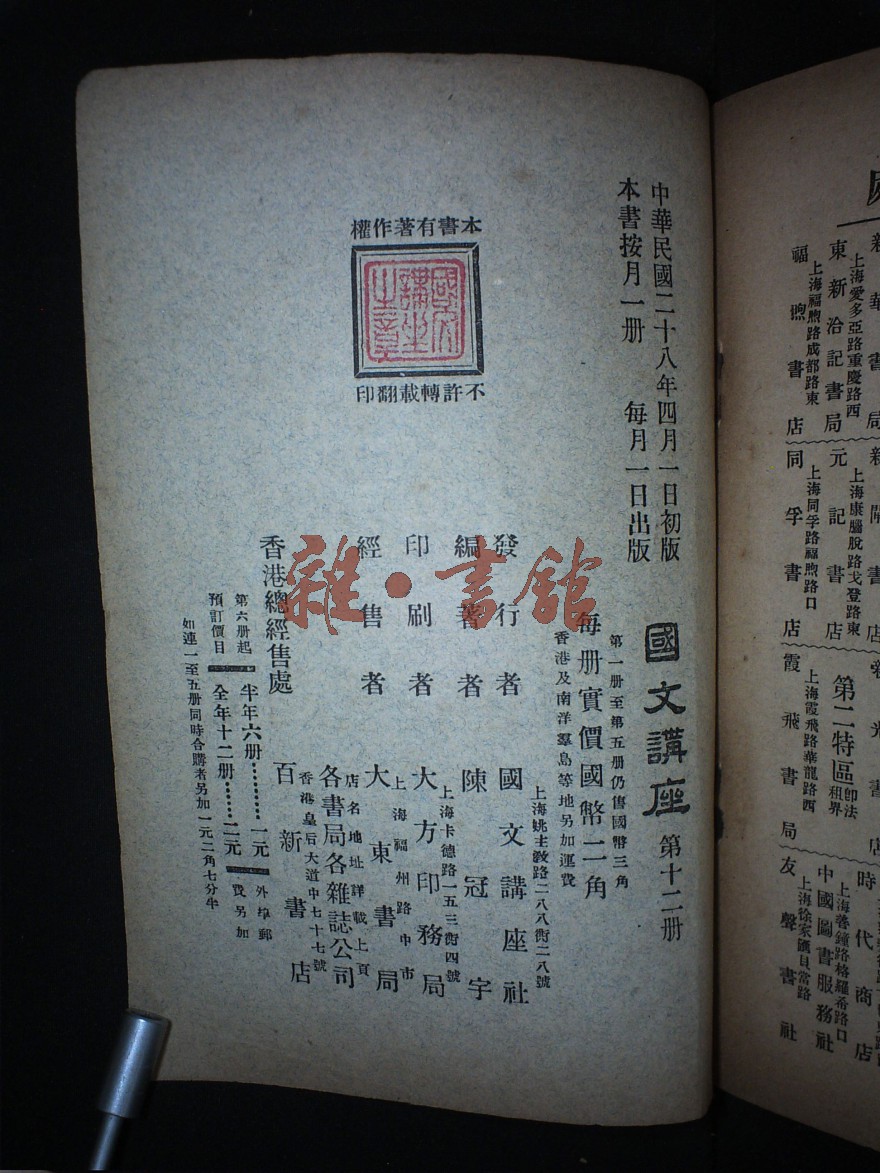 中華民國二十八年四月一日初版
本書按月一册　每月一日出版
本書有著作權
國文講坐之章
不許轉載翻印
國文講座 第十二册
第一册至第五册仍售國幣三角
每册實價國幣二角
香港及南洋羣島等地另加運費
發行者 國文講座社
上海姚主敎路二八八衖二八號
編著者 陳冠宇
印刷者 大方印務局
上海卡德路一五三衖四號
經售者 大東書局
上海福州路中市
各書局各雜誌公司
店名地址詳載上頁
香港總經售處 百新書店
香港皇后大道中七十七號
第六册起
預訂價目
半年六册………一元
全年十二册……二元
外埠郵
費另加
如連一至五册同時合購者另加一元二角七分半
雜·書館
新華書局
上海愛多亞路重慶路西
東新洽記書局
上海福煦路成都路東
福煦書店
上海康腦脫路戈登路東
元記書店
上海同孚路福煦路口
同孚書店
第二特區 即法租界
上海霞飛路華龍路西
霞飛書局
時代商店
上海善鐘路格羅希路口
中國圖書服務社
上海徐家匯貝當路
友聲書社